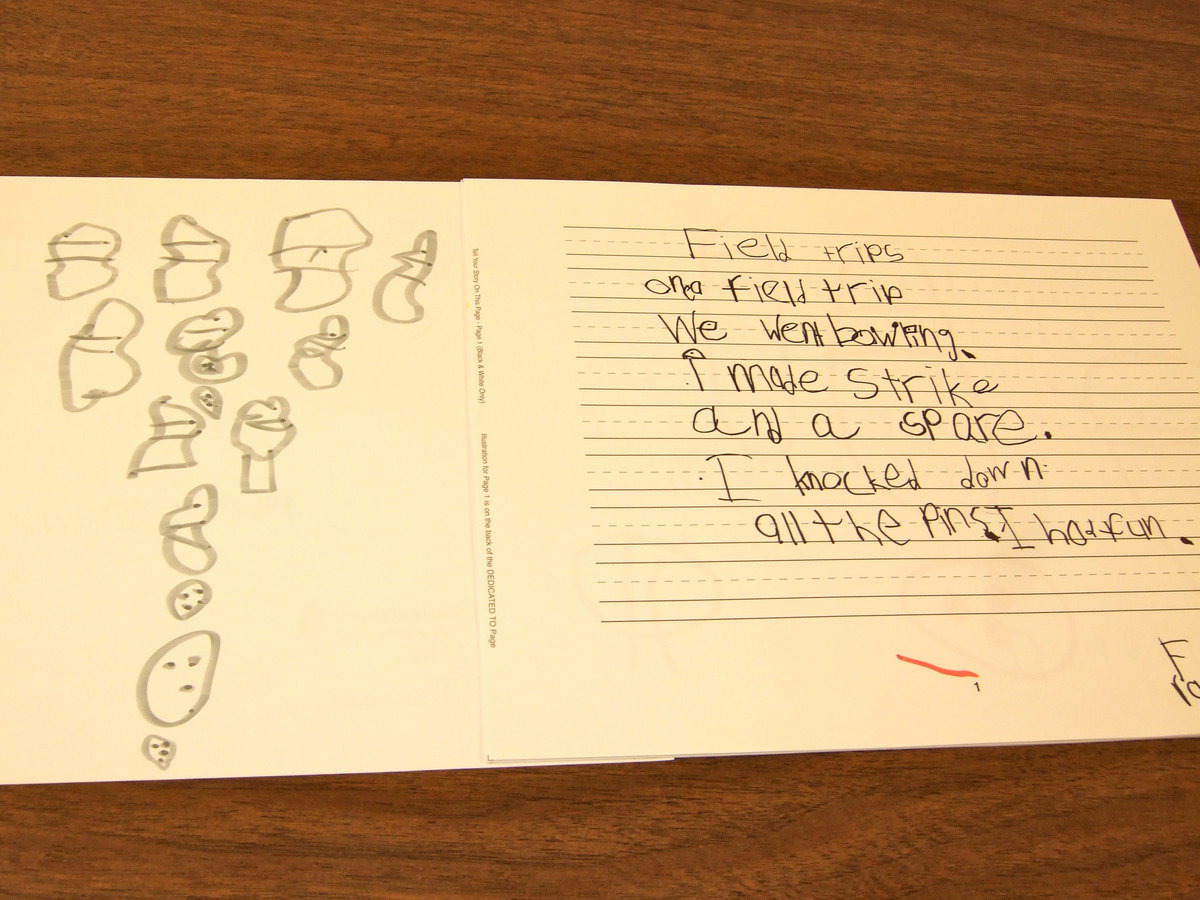 Field trips
one field trip
We went bowling.
I made strike
and a spare.
I knocked down
all the pins. I had fun.
Tell Your Story On This Page - Page 1 (Black & White Only)
Illustration for Page 1 is on the back of the DEDICATED TO Page
1